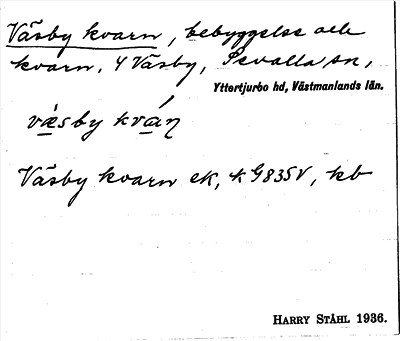 Väsby kvarn, bebyggelse och
kvarn, Y Väsby, Skvalla sn,
Yttertjurbo hd, Västmanlands län.
væ̀sby kván
Väsby kvarn ek, k G835V, kb
HARRY STÅHL 1936.